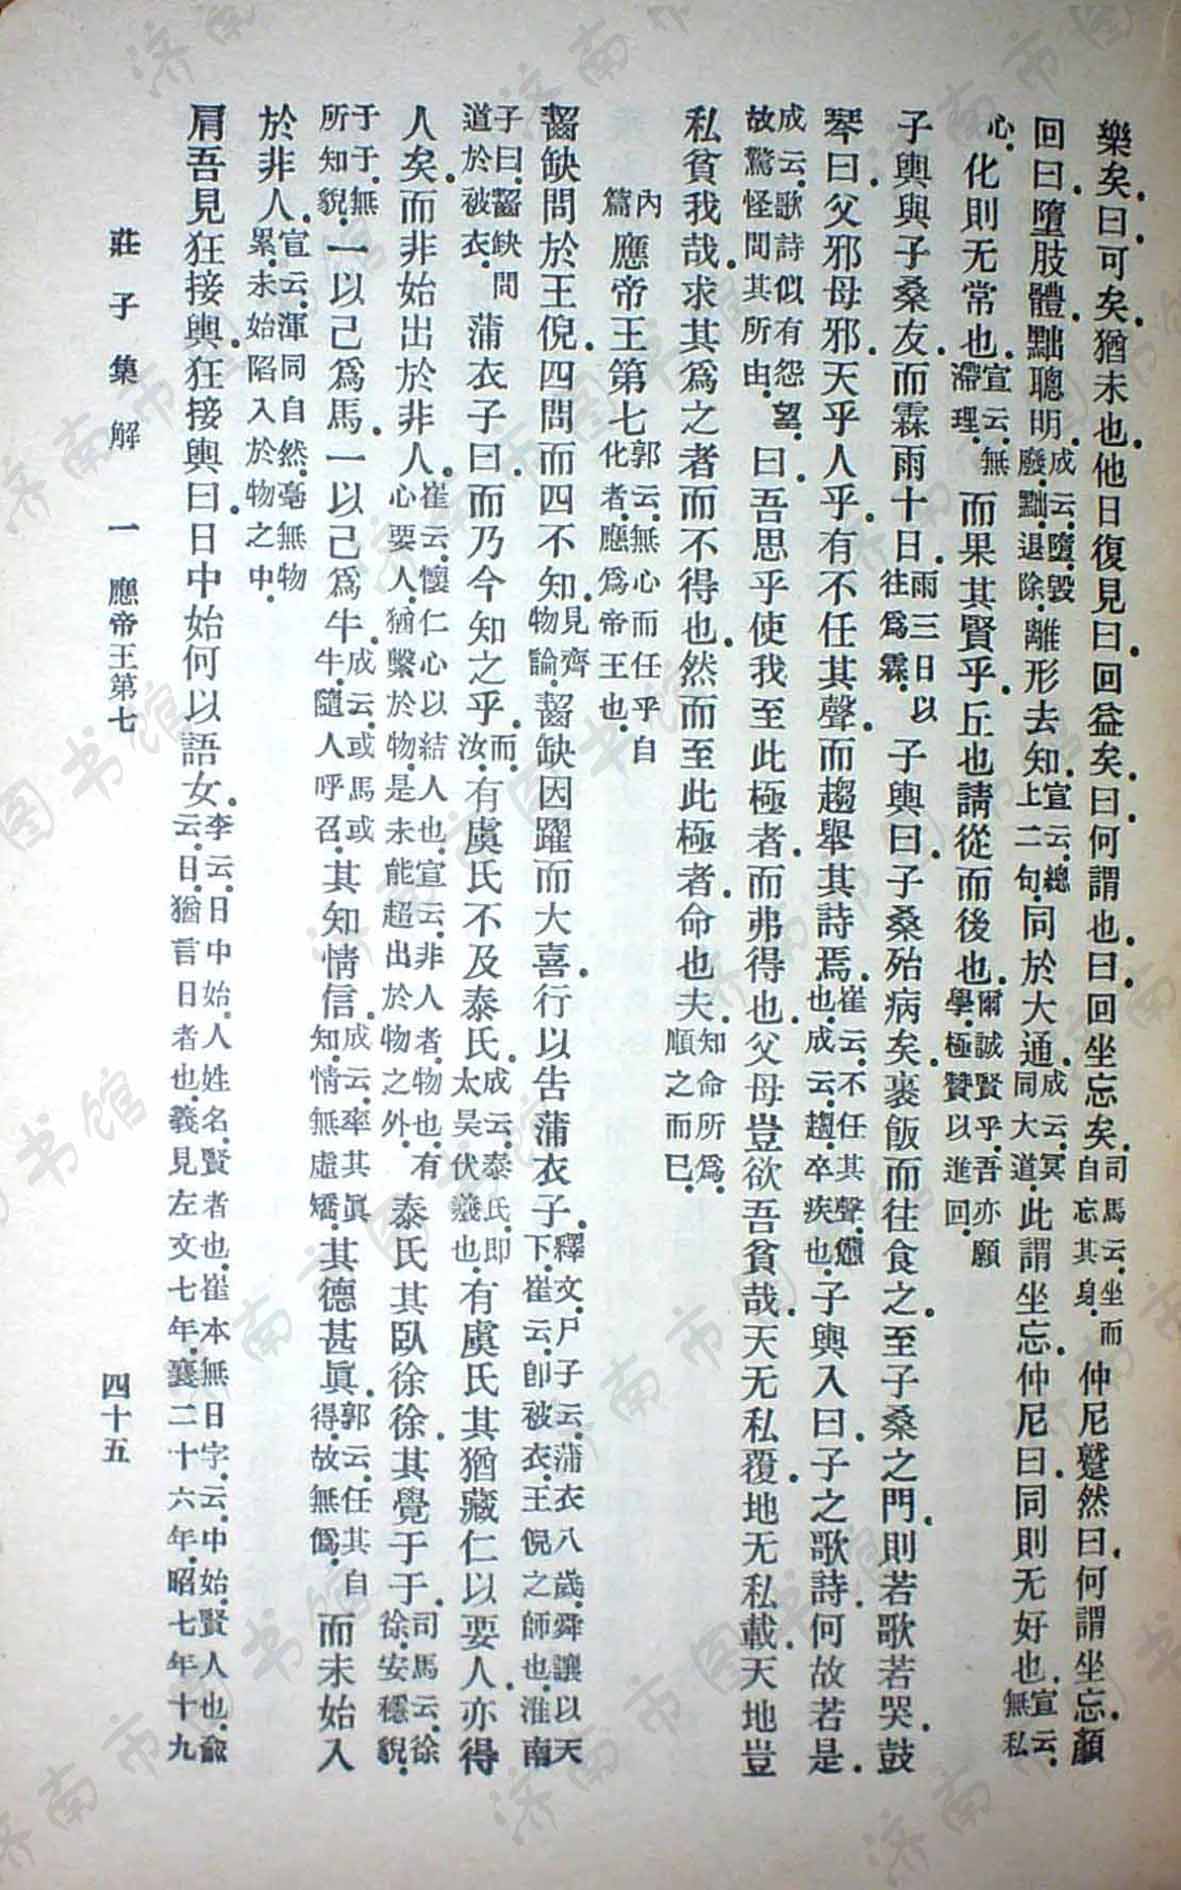 樂矣曰可矣猶未也他日復見曰回益矣曰何謂也曰回坐忘矣司馬云坐而自忘其身仲尼蹵然曰何謂坐忘顏
回曰墮肢體黜聰明成云墮毀廢黜退除離形去知宣云總上二句同於大通成云冥同大道此謂坐忘仲尼曰同則无好也宣云無私
心化則无常也宣云無滯理而果其賢乎丘也請從而後也爾誠賢乎吾亦願學極贊以進回
子輿與子桑友而霖雨十日雨三日以往爲霖子輿曰子桑殆病矣裹飯而往食之至子桑之門則若歌若哭鼓
琴曰父邪母邪天乎人乎有不任其聲而趨舉其詩焉崔云不任其聲憊也成云趨卒疾也子輿入曰子之歌詩何故若是
成云歌詩似有怨望故驚怪問其所由曰吾思乎使我至此極者而弗得也父母豈欲吾貧哉天无私覆地无私載天地豈
私貧我哉求其爲之者而不得也然而至此極者命也夫知命所爲順之而已
內篇應帝王第七郭云無心而任乎自化者應爲帝王也
齧缺問於王倪四問而四不知見齊物論齧缺因躍而大喜行以告蒲衣子釋文尸子云蒲衣八歲舜讓以天下崔云卽被衣王倪之師也淮南
子曰齧缺問道於被衣蒲衣子曰而乃今知之乎而汝有虞氏不及泰氏成云泰氏即太昊伏羲也有虞氏其猶藏仁以要人亦得
人矣而非始出於非人崔云懷仁心以結人也宣云非人者物也有心要人猶繫於物是未能超出於物之外泰氏其臥徐徐其覺于于司馬云徐徐安穩貌
于于無所知貌一以己爲馬一以己爲牛成云或馬或牛隨人呼召其知情信成云率其眞知情無虛矯其德甚眞郭云任其自得故無僞而未始入
於非人宣云渾同自然毫無物累未始陷入於物之中
肩吾見狂接輿狂接輿曰日中始何以語女李云日中始人姓名賢者也崔本無日字云中始賢人也兪云日猶言日者也義見左文七年襄二十六年昭七年十九
莊子集解 一 應帝王第七 四十五